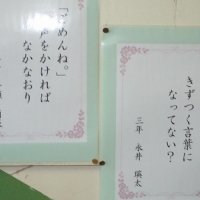 きずつく言葉に
なってない？
三年 永井 瑛太
「ごめんね。」
声をかければ
なかなおり